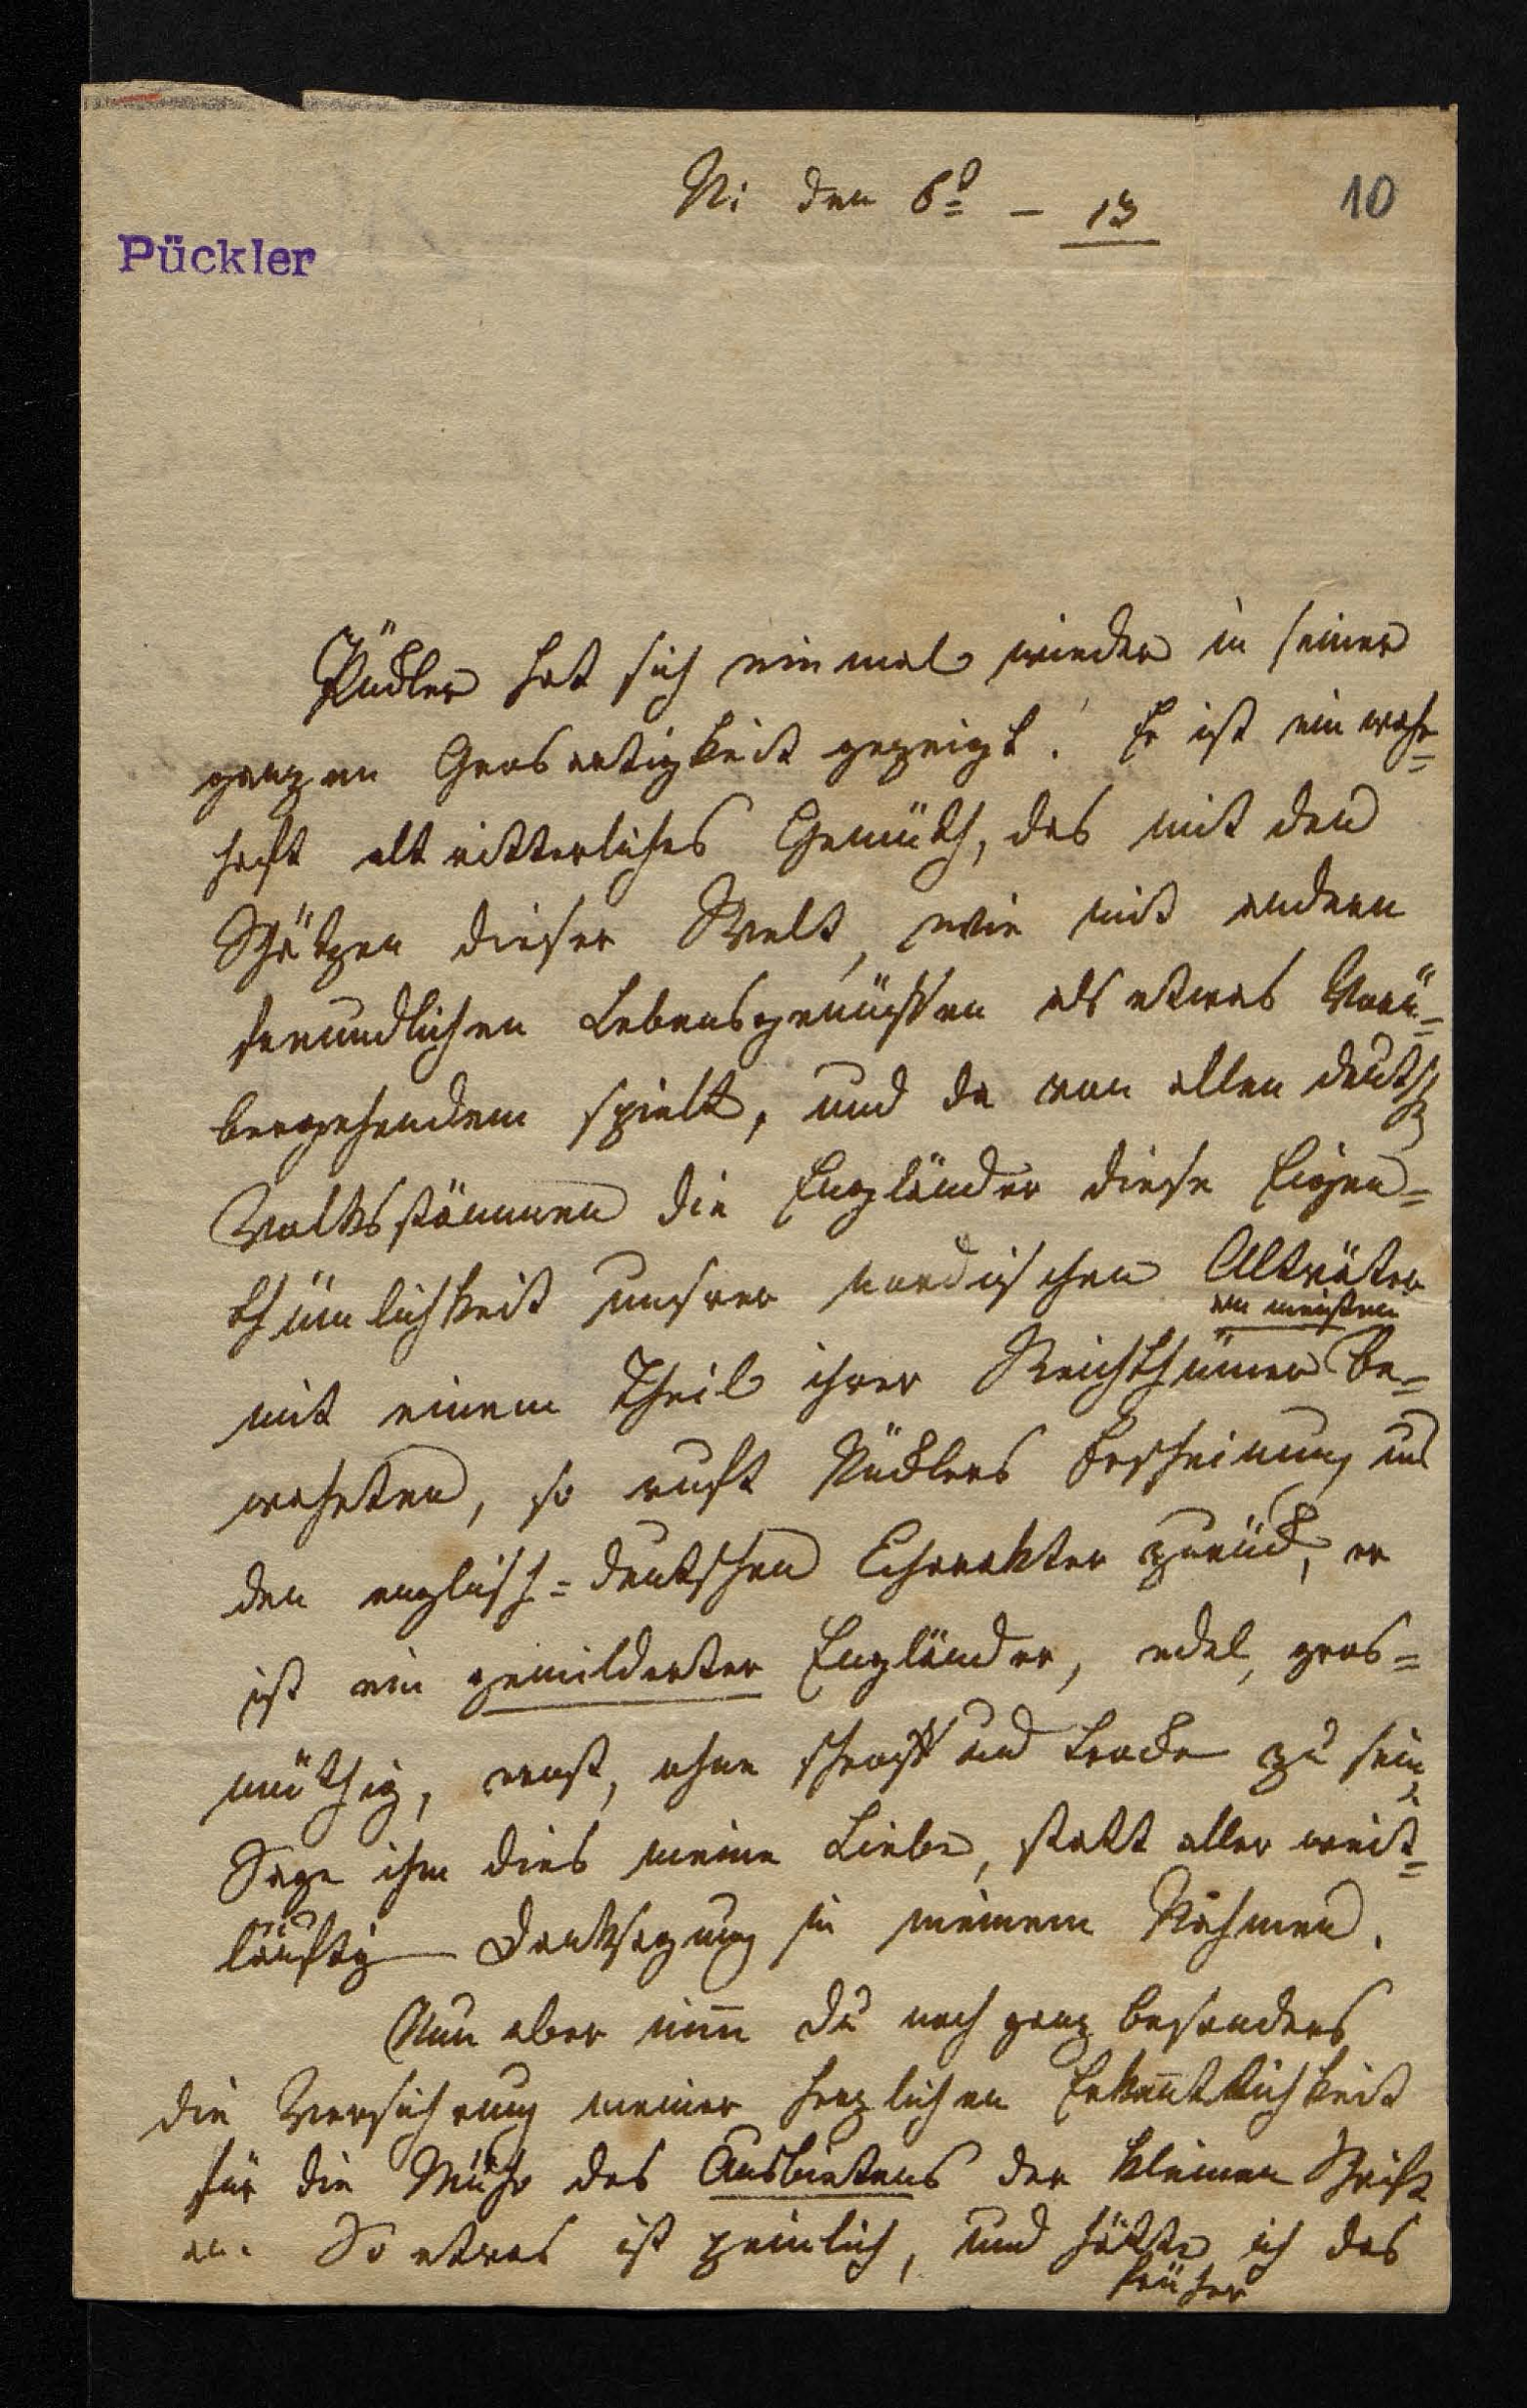 N: den 6t. – 13
10
Pückler
Pückler hat sich einmal wieder in seiner
ganzen Grosartigkeit gezeigt. Er ist ein wahr=
haft altritterliches Gemüth, das mit den
Schätzen dieser Welt, wie mit andern
freundlichen Lebensgenüssen als etwas Vorü=
bergehendem spielt, und da von allen deutsch
Volksstämmen die Engländer diese Eigen=
thümlichkeit unsrer nordischen Altväter
am meisten
mit einem Theil ihrer Reichthümer be=
wahrten, so ruft Pücklers Erscheinung uns
den englisch=deutschen Charakter zurück, er
ist ein gemilderter Engländer, edel, gros=
müthig, ernst, ohne schroff und trocken zu sein,
Sage ihm dies meine Liebe, statt aller weit=
läuftig Danksagung in meinem Nahmen.
Nun aber nim̄ Du noch ganz besonders
die Versichrung meiner herzlichen Erkan̄tlichkeit
für die Mühe des Ausbietens der kleinen Schrift
an. So etwas ist peinlich, und hätte ich das
früher